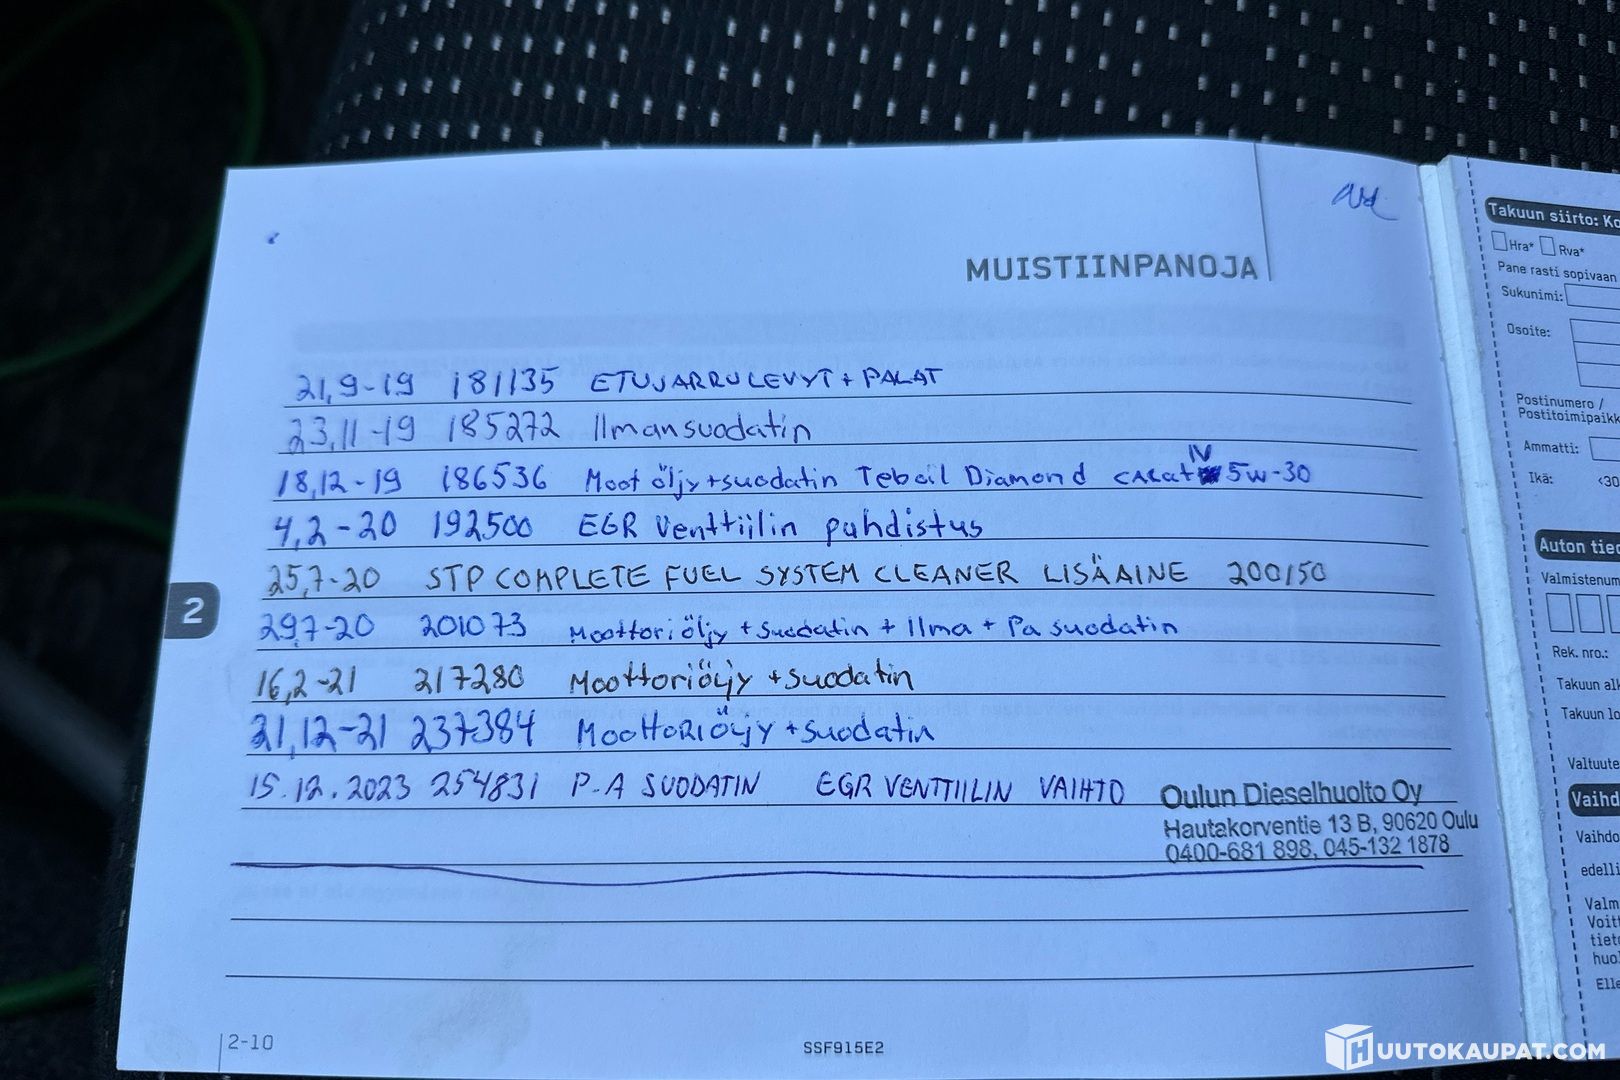 MUISTIINPANOJA
21,9-19 181135 ETUJARRULEVYT + PALAT
23,11-19 185272 Ilmansuodatin
18,12-19 186536 Moot öljy+suodatin Teboil Diamond CARat IV 5W-30
4,2-20 192500 EGR Venttiilin puhdistus
25,7-20 STP COMPLETE FUEL SYSTEM CLEANER LISÄAINE 200150
29,7-20 201073 Moottoriöljy + Suodatin + Ilma + Pa suodatin
16,2-21 217280 Moottoriöljy + suodatin
21,12-21 237384 Moottoriöljy + suodatin
15.12.2023 254831 P-A SUODATIN EGR VENTTIILIN VAIHTO
Oulun Dieselhuolto Oy
Hautakorventie 13 B, 90620 Oulu
0400-681 898, 045-132 1878
2
2-10
SSF915E2
Takuun siirto:
Hra* Rva*
Pane rasti sopivaan
Sukunimi:
Osoite:
Postinumero /
Postitoimipaikk
Ammatti:
Ikä: <30
Auton tied
Valmistenum
Rek. nro.:
Takuun alk
Takuun lo
Valtuute
Vaihd
Vaihdo
edelli
Valm
Voitt
tiet
huol
Elle
HUUTOKAUPAT.COM